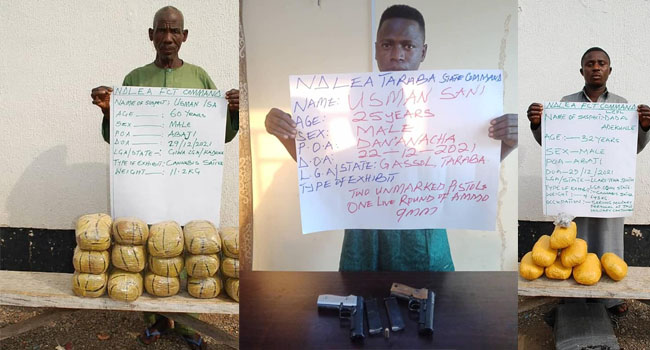 NDLEA FCT COMMAND
NAME OF SUSPECT: USMAN ISA
AGE: 60 YEARS
SEX: MALE
POA: ABAJI
DOA: 29/12/2021
LGA/STATE:
TYPE OF EXHIBIT: CANNABIS SATIVA
WEIGHT: 11.2KG
NDLEA TARABA STATE COMMAND
NAME: USMAN SANI
AGE: 25 YEARS
SEX: MALE
P.O.A: DANANACHA
D.O.A: 22-12-2021
LGA/STATE: GASSOL TARABA
TYPE OF EXHIBIT
TWO UNMARKED PISTOLS
ONE LIVE ROUND OF AMMO
9MM
NDLEA FCT COMMAND
NAME OF SUSPECT:
AGE: 32 YEARS
SEX: MALE
POA: ABAJI
DOA: 29/12/2021
LGA/STATE: